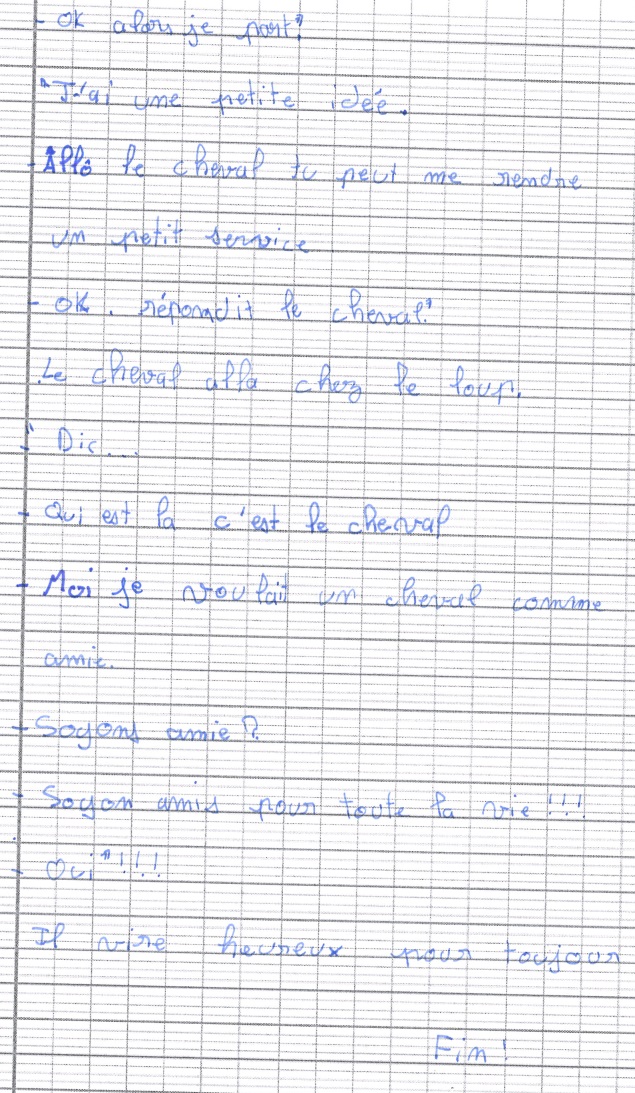 - OK alors je part"
"J'ai une petite ideé.
- Allô le cheval tu peut me rendre
un petit service
- OK. répondit le cheval"
Le cheval alla chez le loup.
" Dic...
- Qui est la c'est le cheval
- Moi je voulait un cheval comme
amie.
- Soyons amie ?
- Soyon amis pour toute la vie !!!
- Oui"!!!!
Il vire heureux pour toujour
Fin !